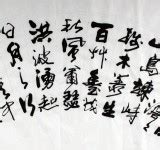 山島竦峙
樹木叢生
百艸豐茂
秋風蕭瑟
洪波湧起
日月之行